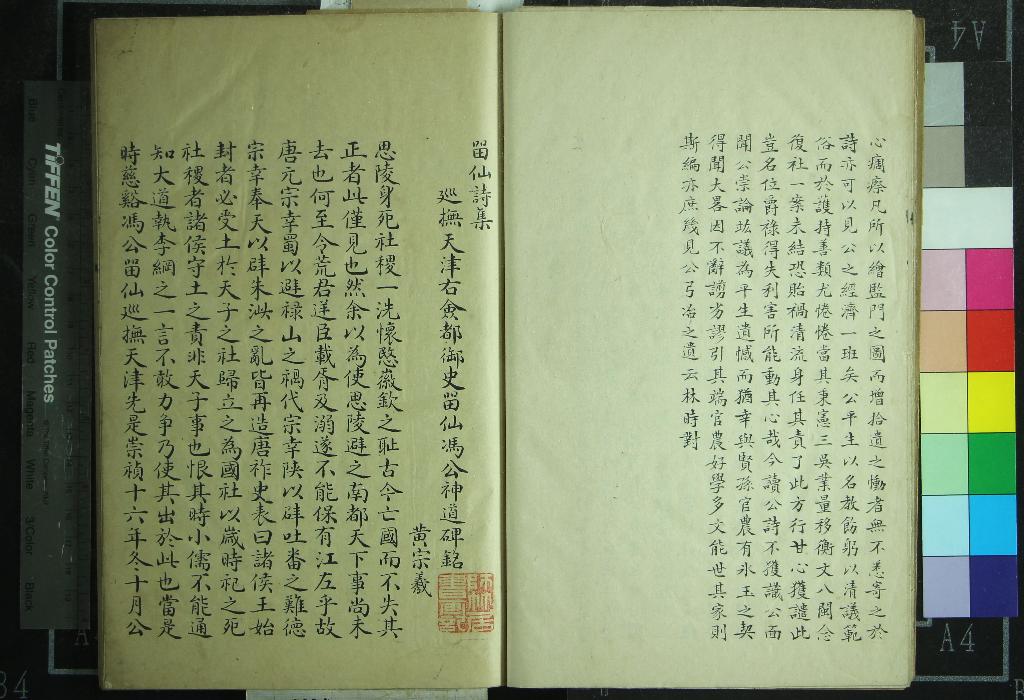 心痌瘝凡所以繪監門之圖而增拾遺之慟者無不悉寄之於
詩亦可以見公之經濟一班矣公平生以名教飭躬以清議範
俗而於護持善類尤惓惓當其秉憲三吳業量移衡文八閩念
復社一案未結恐貽禍清流身任其責了此方行甘心獲譴此
豈名位爵祿得失利害所能動其心哉今讀公詩不獲識公面
聞公崇論竑議為平生遺憾而猶幸與賢孫官農有氷玉之契
得聞大畧因不辭譾劣謬引其端官農好學多文能世其家則
斯編亦庶幾見公弓冶之遺云林時對
畱仙詩集
巡撫天津右僉都御史畱仙馮公神道碑銘
黃宗羲
思陵身死社稷一洗懷愍徽欽之恥古今亡國而不失其
正者此僅見也然余以為使思陵避之南都天下事尚未
去也何至今荒君逆臣載胥及溺遂不能保有江左乎故
唐元宗幸蜀以避祿山之禍代宗幸陜以辟吐番之難德
宗幸奉天以辟朱泚之亂皆再造唐祚史表曰諸侯王始
封者必受土於天子之社歸立之為國社以歲時祀之死
社稷者諸侯守土之責非天子事也恨其時小儒不能通
知大道執李綱之一言不敢力爭乃使其出於此也當是
時慈谿馮公畱仙巡撫天津先是崇禎十六年冬十月公
TIFFEN Color Control Patches
Blue
Cyan
Green
Yellow
Red
Magenta
White
3/Color
Black
A4
A4